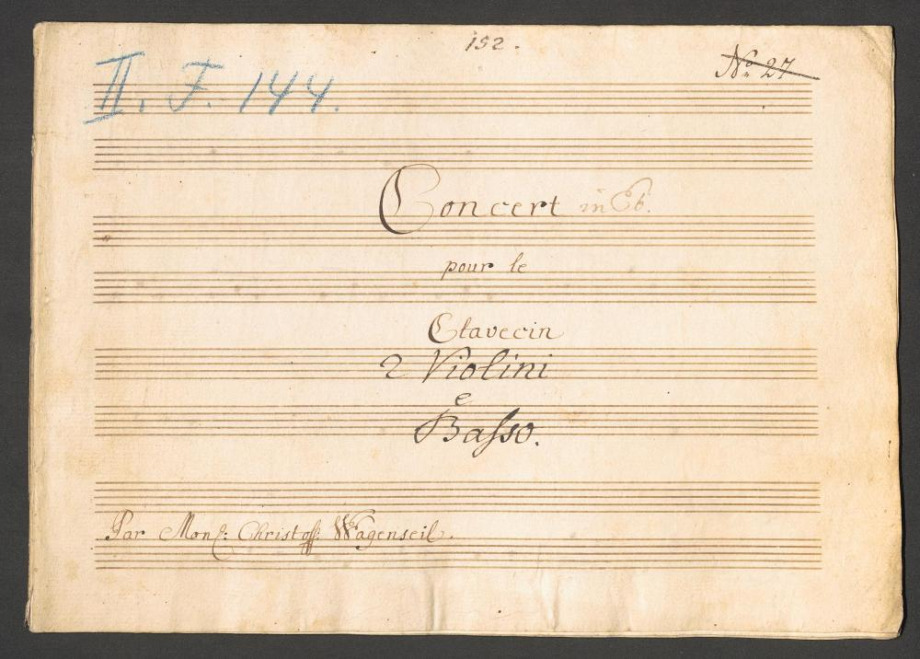 152.
No 27
II. F. 144.
Concert in Eb.
pour le
Clavecin
2 Violini
e
Baſso.
Par Monſ: Christoff: Wagenseil.